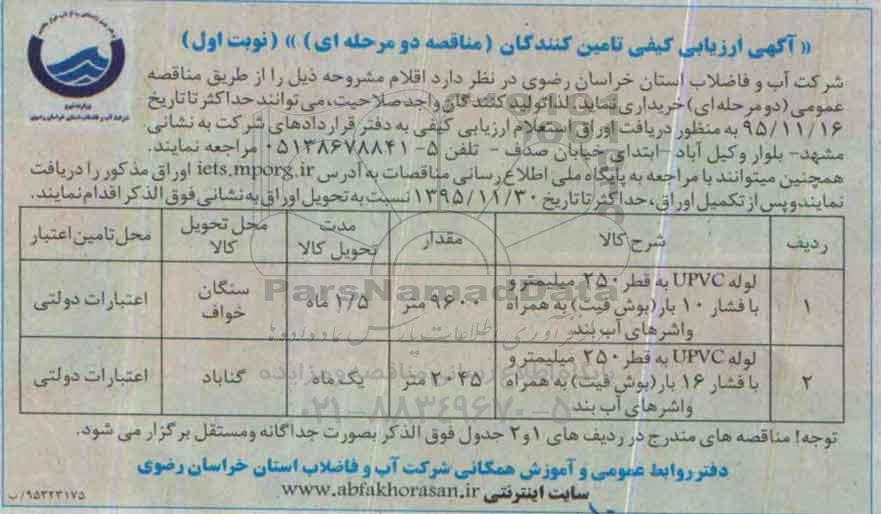 « آگهی ارزیابی کیفی تامین کنندگان (مناقصه دو مرحله ای) » (نوبت اول)
شرکت آب و فاضلاب استان خراسان رضوی در نظر دارد اقلام مشروحه ذیل را از طریق مناقصه
عمومی (دو مرحله ای) خریداری نماید. لذا تولید کنندگان واجد صلاحیت، می توانند حداکثر تا تاریخ
۹۵/۱۱/۱۶ به منظور دریافت اوراق استعلام ارزیابی کیفی به دفتر قراردادهای شرکت به نشانی-
مشهد- بلوار وکیل آباد -ابتدای خیابان صدف - تلفن ۵- ۰۵۱۳۸۶۷۸۸۴۱ مراجعه نمایند.
همچنین میتوانند با مراجعه به پایگاه ملی اطلاع رسانی مناقصات به آدرس iets.mporg.ir اوراق مذکور را دریافت
نمایند و پس از تکمیل اوراق، حداکثر تا تاریخ ۱۳۹۵/۱۱/۳۰ نسبت به تحویل اوراق به نشانی فوق الذکر اقدام نمایند.
ردیف شرح کالا مقدار مدت تحویل کالا محل تحویل کالا محل تامین اعتبار
۱ لوله UPVC به قطر ۲۵۰ میلیمتر و با فشار ۱۰ بار (بوش فیت) به همراه واشرهای آب بند ۹۶۰۰ متر ۱/۵ ماه سنگان خواف اعتبارات دولتی
۲ لوله UPVC به قطر ۲۵۰ میلیمتر و با فشار ۱۶ بار (بوش فیت) به همراه واشرهای آب بند ۲۰۴۵ متر یک ماه گناباد اعتبارات دولتی
توجه! مناقصه های مندرج در ردیف های ۱و۲ جدول فوق الذکر بصورت جداگانه ومستقل برگزار می شود.
دفتر روابط عمومی و آموزش همگانی شرکت آب و فاضلاب استان خراسان رضوی
سایت اینترنتی www.abfakhorasan.ir
۹۵۳۲۳۱۷۵/ب
وزارت نیرو
شرکت آب و فاضلاب استان خراسان رضوی
ParsNamadData
پایگاه اطلاع رسانی مناقصه و مزایده
۰۲۱-۸۸۳۴۹۶۷۰-۵